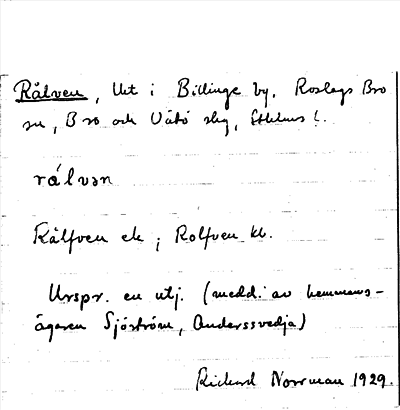 Rålven, Ut i Billinge by, Roslags Bro
sn, Bro och Vätö slg, Sthlms l.
rålvan
Kålfven ek; Rolfven kb.
Urspr. en utj. (medd. av hemmans-
ägaren Sjöström, Anderssvedja)
Richard Norrman 1929.